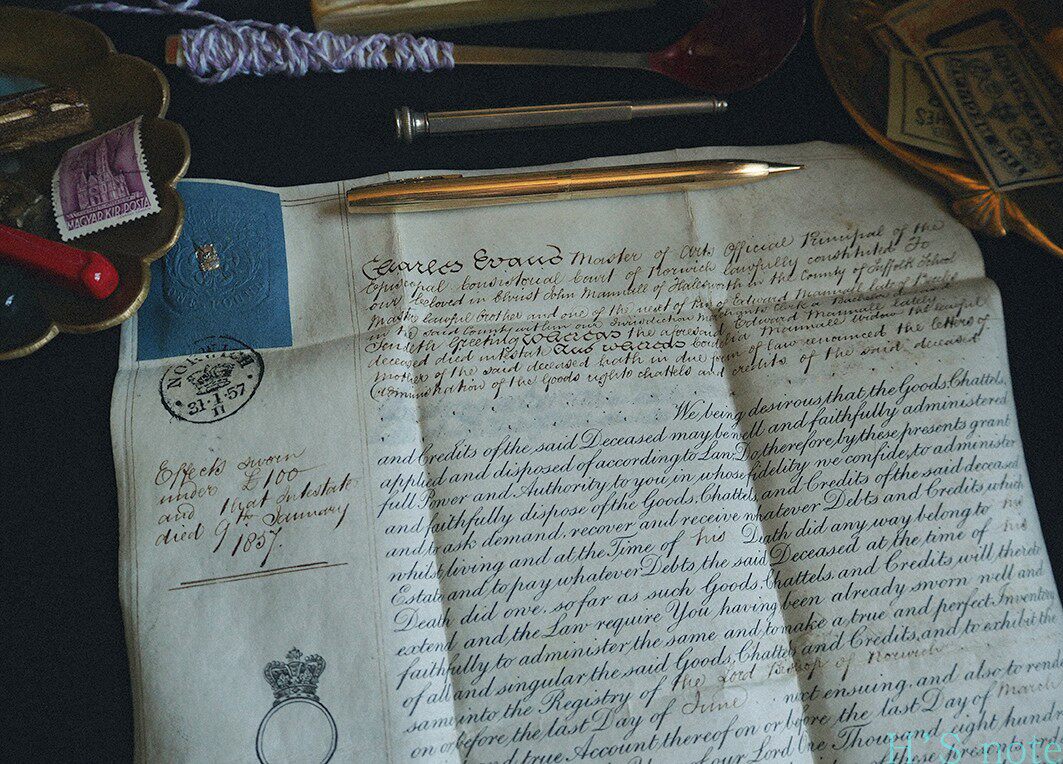 MAGYAR KIR. POSTA
NORWICH
31·1·57
11
Effects sworn
under £100
and that Intestate
died 9th January
1857.
Charles Evans Master of Arts Official Principal of the
Episcopal Consistorial Court of Norwich lawfully constituted To
our beloved in Christ John Mannall of Halesworth in the County of Suffolk School
Master lawful brother and one of the next of Edward Mannall late of
in the said County within our Jurisdiction Merchants Clerk a Bachelor
Greeting Whereas the aforesaid Edward Mannall lately
deceased died intestate And whereas Mannall Widow the lawful
Mother of the said deceased hath in due form of law renounced the letters of
administration of the Goods rights chattels and credits of the said deceased
We being desirous, that the Goods, Chattels,
and Credits of the said Deceased may be well and faithfully administered
applied and disposed of according to Law Do, therefore, by these presents grant
full Power and Authority to you, in whose fidelity we confide, to administer
and faithfully dispose of the Goods, Chattels, and Credits of the said deceased
and to ask demand, recover and receive whatever Debts and Credits which
whilst living and at the Time of his Death did any way belong to his
Estate and to pay whatever Debts the said Deceased at the time of his
Death did owe, so far as such Goods, Chattels, and Credits will thereto
extend and the Law require You having been already sworn well and
faithfully to administer the same and to make a true and perfect Inventory
of all and singular the said Goods, Chattels and Credits, and to exhibit the
same into the Registry of the Lord Bishop of Norwich
on or before the last Day of June next ensuing, and also to rend
and true Account thereof on or before the last Day of March
our Lord One Thousand Eight hundr
H'S note